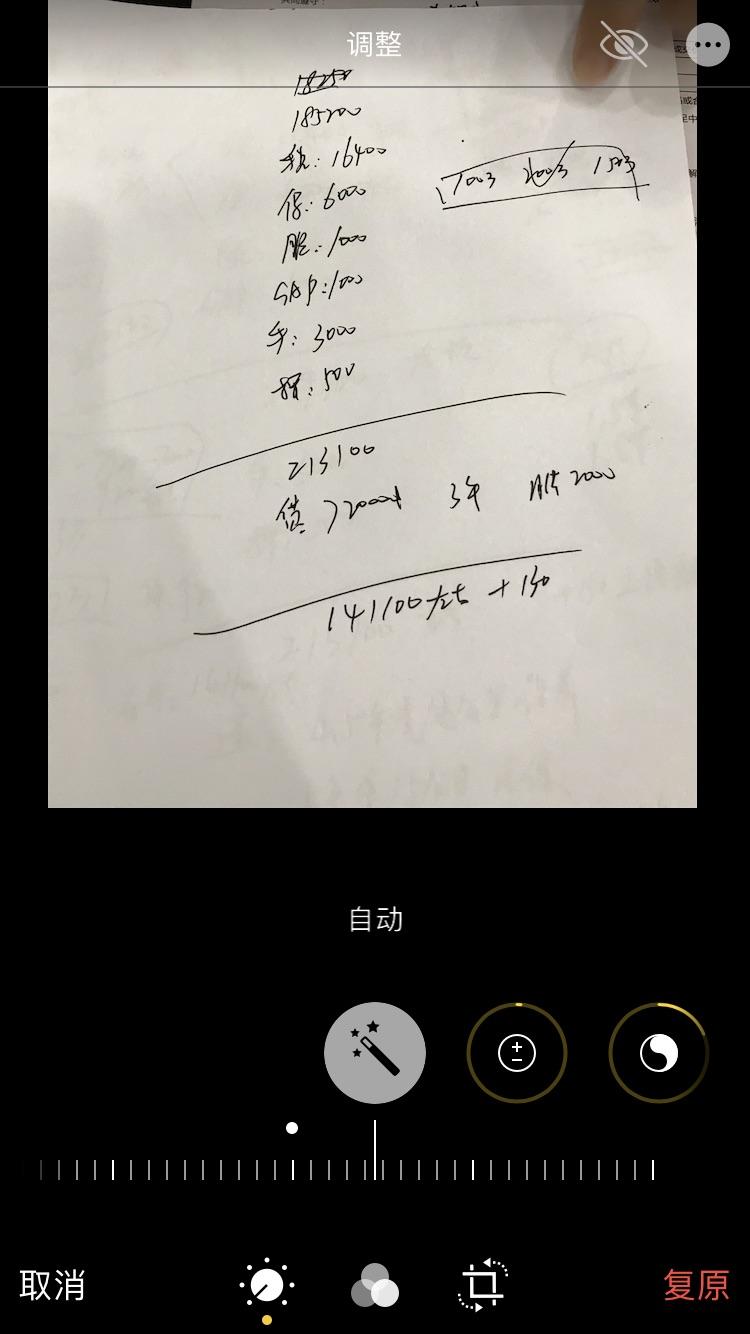 调整
185200
税:16400
保:6000
服:1000
GAP:1000
手:3000
押:500
1003 2003 1503
213100
贷72000 3年 月供2000
141100左右 + 130
自动
取消
复原